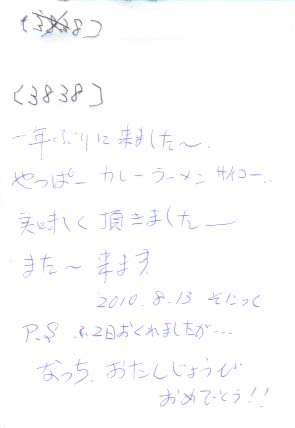 [3838]
一年ぶりに来ました〜.
やっぱー カレーラーメン サイコー.
美味しく頂きました〜
また〜 来ます
2010.8.13 そにっく
P.S 2日おくれましたが…
なっち. おたんじょうび
おめでとう!!